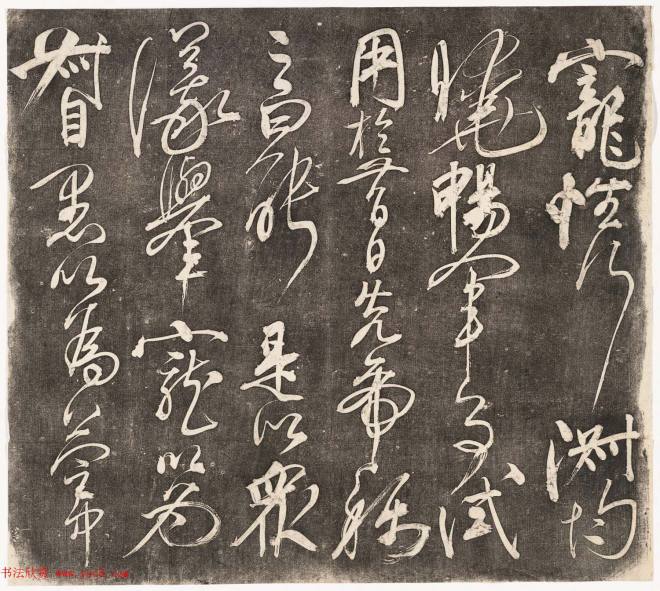 寵性行淑均
曉暢軍事試
用於昔日先帝稱
之曰能是以衆
議舉寵以為
督愚以為營中
书法欣赏 www.yac8.com